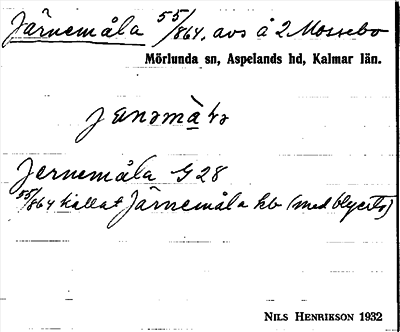 Järnemåla 55/864, avs å 2 Mossebo
Mörlunda sn, Aspelands hd, Kalmar län.
Jernemåla G 28
55/864 kallat Järnemåla kb (med blyerts)
NILS HENRIKSON 1932